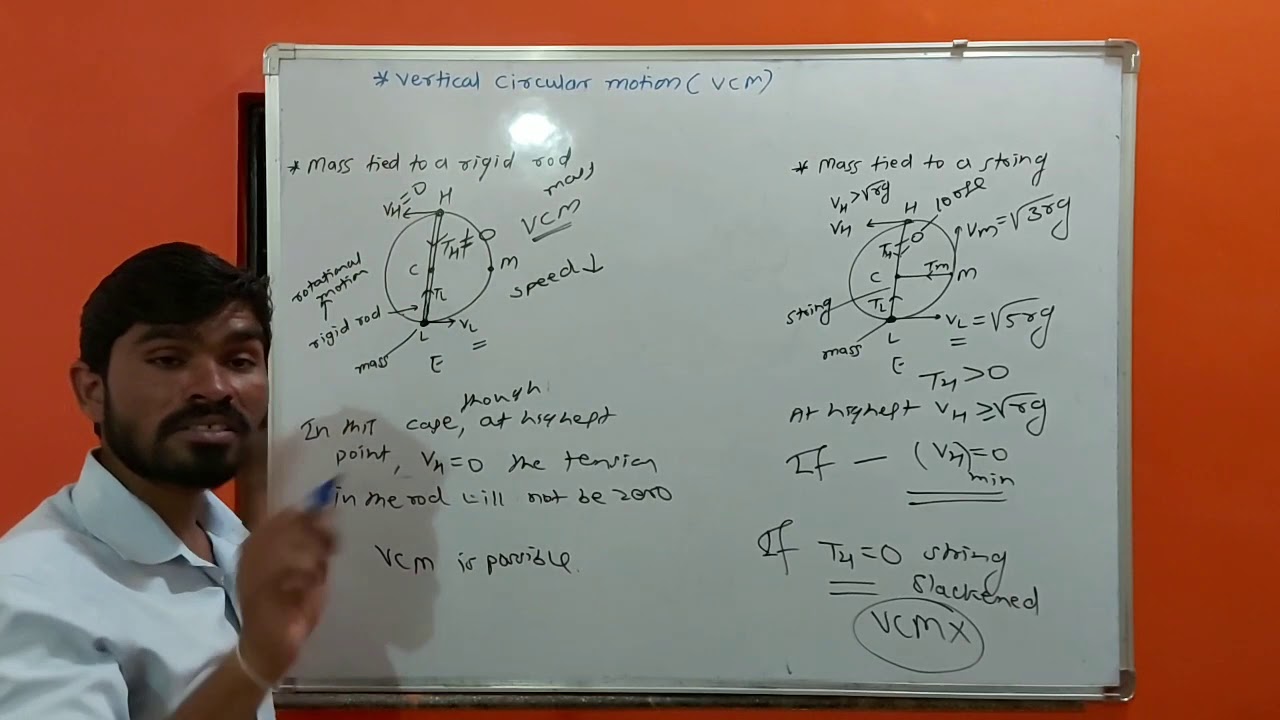 * Vertical Circular motion (VCM)
* Mass tied to a rigid rod
mass
VCM
VH = 0
H
TH ≠ 0
C
M
speed ↓
rotational
motion
rigid rod
TL
L
VL
mass
E
though
In this case, at highest
point, VH = 0 the tension
in the rod will not be zero
VCM is possible.
* Mass tied to a string
VH > √rg
H
loose
VH
TH
0
Vm = √3rg
C
Tm
M
string
TL
VL = √5rg
L
mass
E
TH > 0
At highest VH ≥ √rg
If — (VH)min = 0
If TH = 0 string
slackened
VCM X